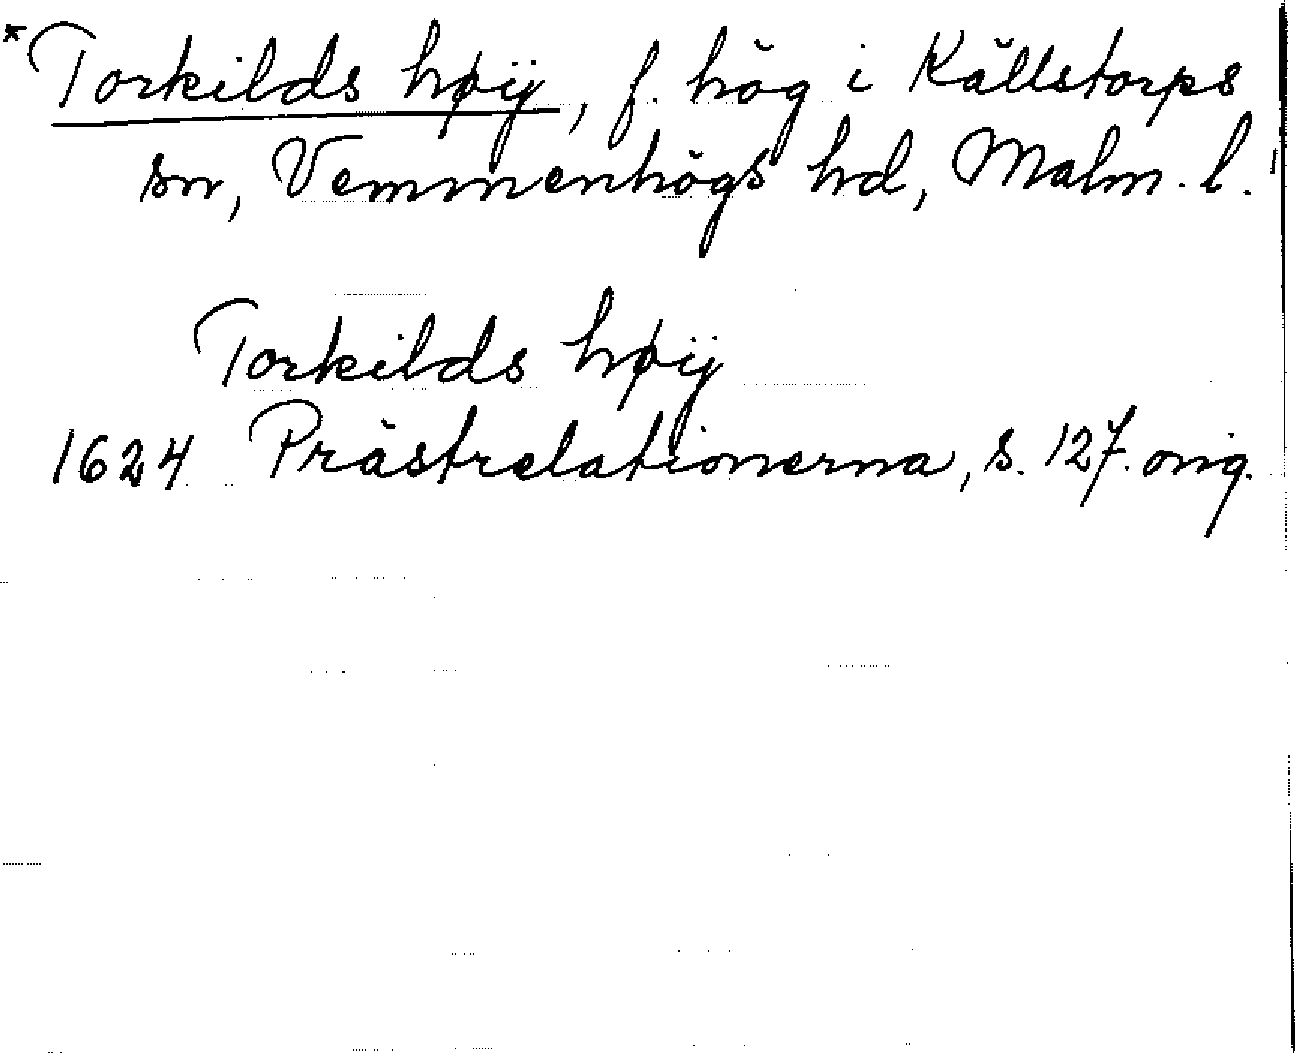 *Torkilds høij, f. hög i Källstorps
sn, Vemmenhögs hd, Malm. l.
Torkilds høij
1624 Prästrelationerna, s. 127. orig.